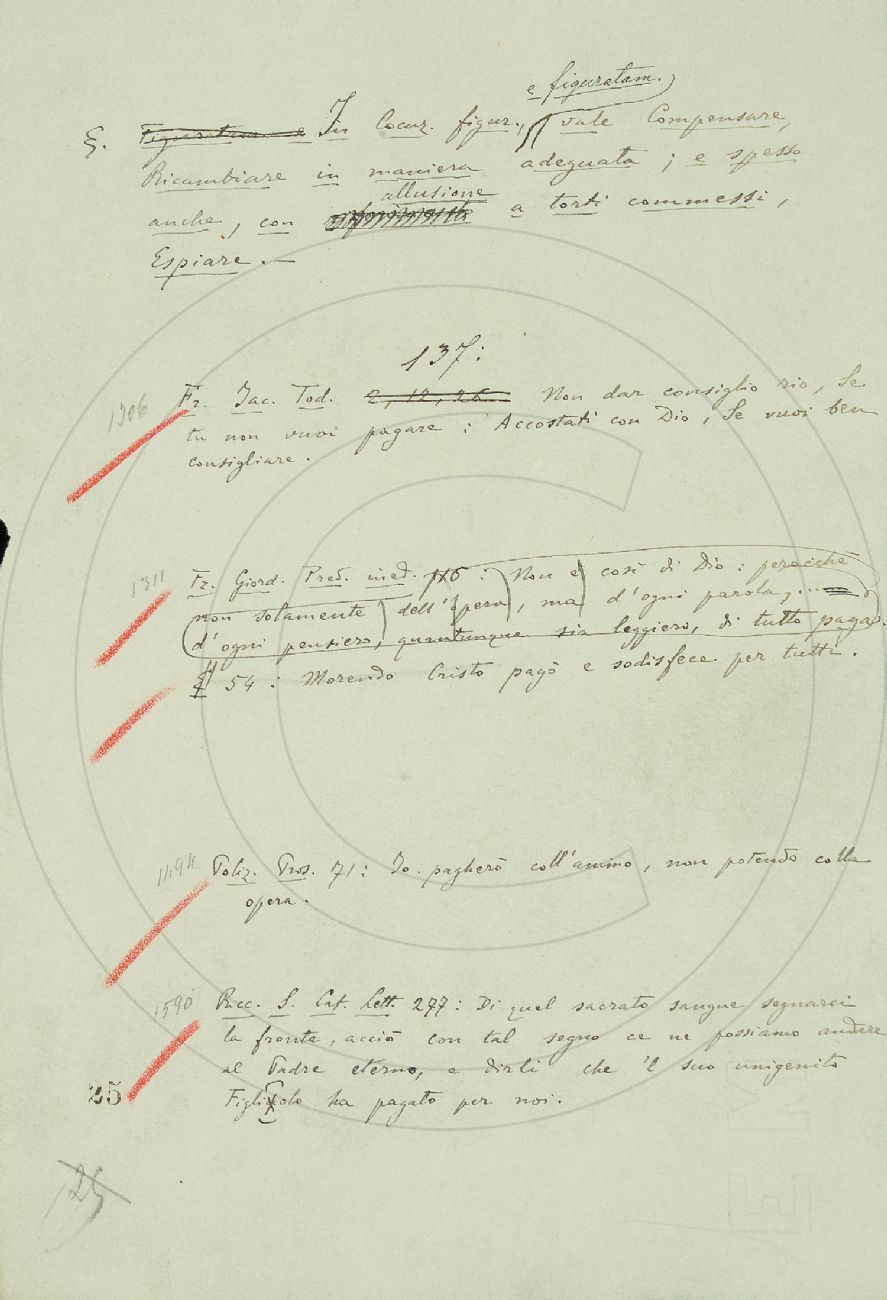 e figuratam.
§. Figuratam. e In locuz. figur., vale Compensare,
Ricambiare in maniera adeguata; e spesso
allusione
anche, con a torti commessi,
Espiare. —
137:
1306 Fr. Jac. Tod. 2, 12, 26 Non dar consiglio rio, Se
tu non vuoi pagare: Accostati con Dio, Se vuoi ben
consigliare.
1311 Fr. Giord. Pred. ined. 116: Non è così di Dio: perocchè
non solamente dell'opera, ma d'ogni parola, ...
d'ogni pensiero, quantunque sia leggiero, di tutto paga.
E 54: Morendo Cristo pagò e sodisfece per tutti.
1494 Poliz. Pros. 71: Io pagherò coll'animo, non potendo colla
opera.
1590 Ricc. S. Cat. Lett. 277: Di quel sacrato sangue segnarci
la fronte, acciò con tal segno ce ne possiamo andare
al Padre eterno, e dirli che 'l suo unigenito
Figliuolo ha pagato per noi.
25
25